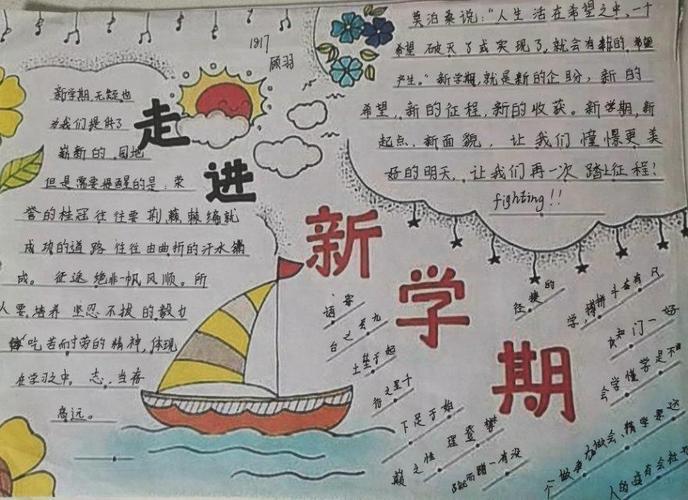 走进
新学期
1917
顾羽
新学期无疑也
为我们提供了
崭新的园地
但是需要提醒的是:荣
誉的桂冠往往要荆棘棘编就
成功的道路往往由曲折的汗水铺
成。征途绝非一帆风顺。所
人要培养坚忍不拔的毅力
吃苦而耐劳的精神,体现
在学习之中。志,当存
高远。
莫泊桑说:“人生活在希望之中,一个
希望破灭了或实现了,就会有新的希望
产生。”新学期,就是新的企盼,新的
希望,新的征程,新的收获。新学期,新
起点,新面貌,让我们憧憬更美
好的明天,让我们再一次踏上征程!
fighting!!
台之高九
土垒于起
行之里千
下足于始
理登攀
巅之性
的
学,拼搏斗苦有只
门一好
会学懂学是不